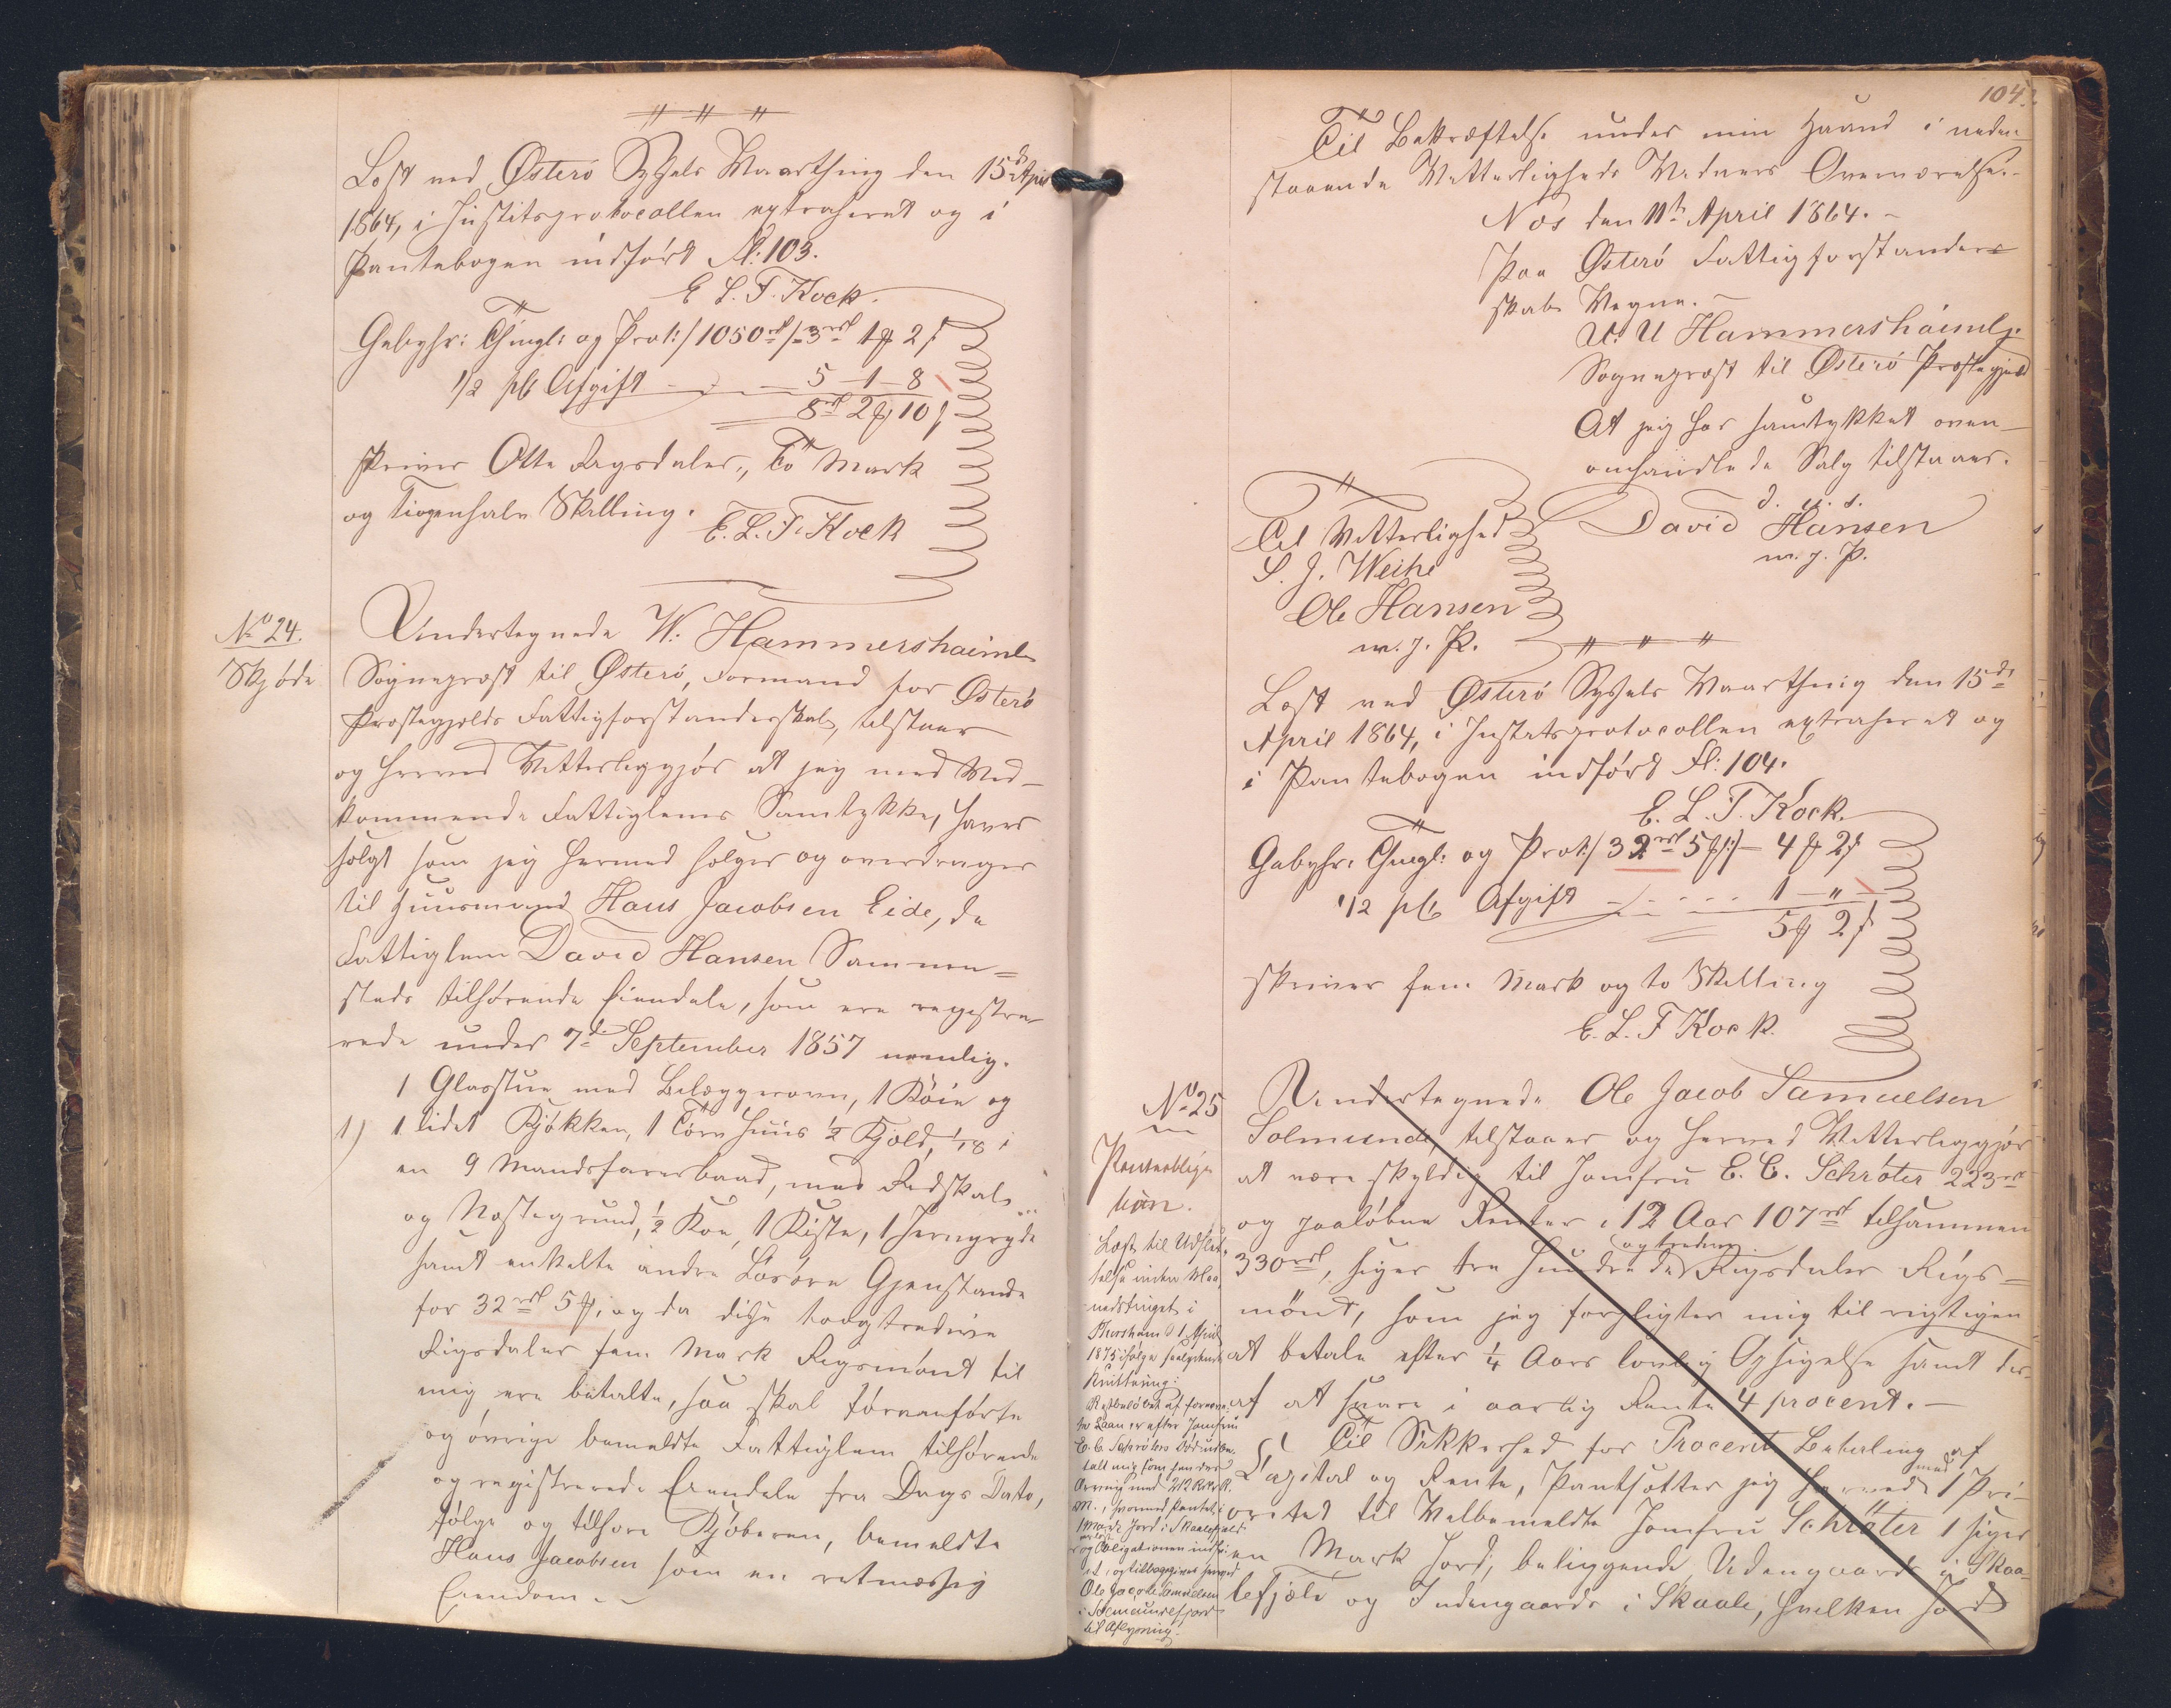 Læst ved Østerø Syssels Vaarthing den 15de April
1864, i Justitsprotocollen extraheret og i
Pantebogen indført Fl: 103.
E. L. T. Kock.
Gebyhr: Thingl: og Prot:/1050rd/ = 3rd 1 ℔ 2 ß
1/2 pCt Afgift — 5 — 1 — 8
8rd 2 ℔ 10 ß
skriver Otte Rigsdaler, To Mark
og Tiogenhalv Skilling.
E. L. T. Kock
No 24.
Skjøde
Undertegnede V. U. Hammershaimb
Sognepræst til Østerø, Formand for Østerø
Præstegjelds Fattigforstanderskab, tilstaaer
og herved Vitterliggjør at jeg med Ved-
kommende Fattiglems Samtykke, haver
solgt som jeg hermed sælger og overdrager
til Huusmand Hans Jacobsen Eide, de
Fattiglem David Hansen Sammen-
steds tilhørende Eiendele, som ere registre-
rede under 7de September 1857 nemlig.
1 Glasstue med Bilæggerovn, 1 Köie og
1) 1 lidet Kjøkken, 1 Törv Huus 1/2 Kjæld, 1/18 i
en 9 Mandsfarerbaad, med Redskab
og Nøstegrund, 1/2 Koe, 1 Kiste, 1 Jerngryde
samt enkelte andre Løsøre Gjenstande
for 32rd 5 ℔, og da disse to og tredive
Rigsdaler fem Mark Rigsmønt til
mig ere betalte, saa skal foranførte
og øvrige bemeldte Fattiglem tilhørende
og registrerede Eiendele fra Dags Dato,
følge og tilhøre Kjøberen, bemeldte
Hans Jacobsen som en retmæssig
Eiendom.
104.
Til Bekræftelse under min Haand i neden-
staaende Vitterligheds Vidners Overværelse.
Næs den 11te April 1864.
Paa Østerø Fattigforstander-
skabs Vegne.
V. U. Hammershaimb
Sognepræst til Østerø Præstegjæld
At jeg har samtykket oven-
omhandlede Salg tilstaaes.
d. u. s.
David Hansen
m. f. P.
Til Vitterlighed
S. J. Weihe
Ole Hansen
m. f. P.
Læst ved Østerø Syssels Vaarthing den 15de
April 1864, i Justitsprotocollen extraheret og
i Pantebogen indført Fl: 104.
E. L. T. Kock.
Gebyhr: Thingl: og Prot:/32rd 5 ℔/ — 4 ℔ 2 ß
1/2 pCt Afgift — 1 — „
5 ℔ 2 ß
skriver fem Mark og to Skilling
E. L. T. Kock.
No 25
Pantobliga-
tion.
Læst til Udslet-
telse inden Maa-
nedstinget i
Thorshavn 1 April
1875 ifølge saalydende
Kvittering:
Restbeløbet af foranørte
Laan er efter Jomfru
E. C. Schrøters Død udbe-
talt mig som hendes
Arving med 212 Rd
M., hvormed Pantet i
1 Mark Jord i Skaalefjeld
og Obligationen indfri-
et, og tilbagegives herved
Ole Jacob Samuelsen
i Solmundefjord
til Aflysning.
Undertegnede Ole Jacob Samuelsen
Solmunde, tilstaaer og herved Vitterliggjør
at være skyldig til Jomfru E. C. Schröter 223rd
og paaløbne Renter i 12 Aar 107rd tilsammen
330rd, siger tre Hundrede og tredive Rigsdaler Rigs-
mønt, som jeg forpligter mig til rigtigen
at betale efter 1/4 Aars lovlig Opsigelse samt der-
af at svare i aarlig Rente 4 procent.
Til Sikkerhed for Procent Betaling af
Capital og Rente, Pantsætter jeg herved med 1 Pri-
oritet til Velbemeldte Jomfru Schröter 1 siger
en Mark Jord, beliggende Udengaards i Skaa-
lefjeld og Indengaards i Skaale, hvilken Jord